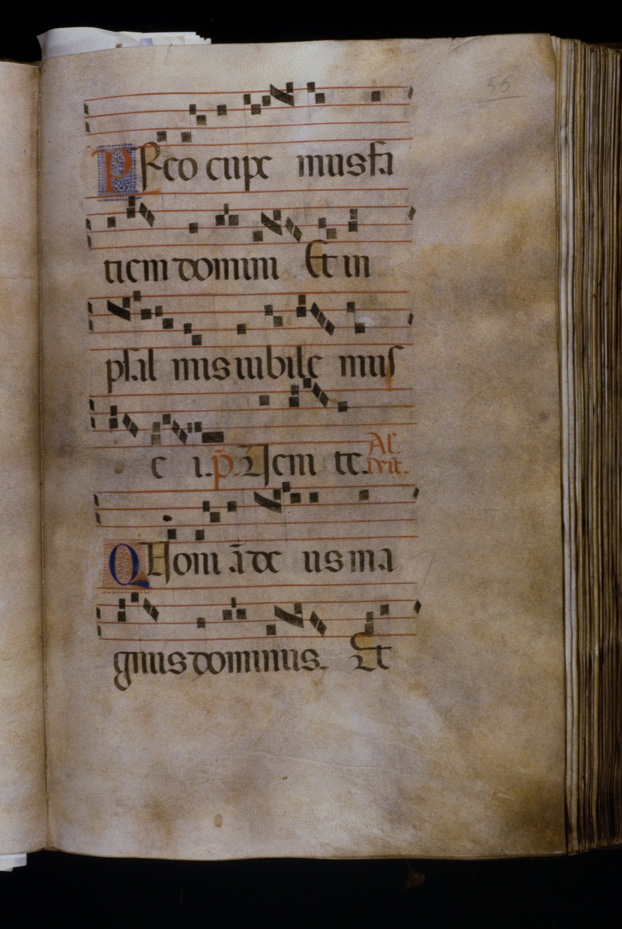 55
PReocupe mus fa
tiem domini Et in
psal mis iubile mus
e i. p̄. Uem te. Al.
Quoni ā de us ma
gnus dominus. Et